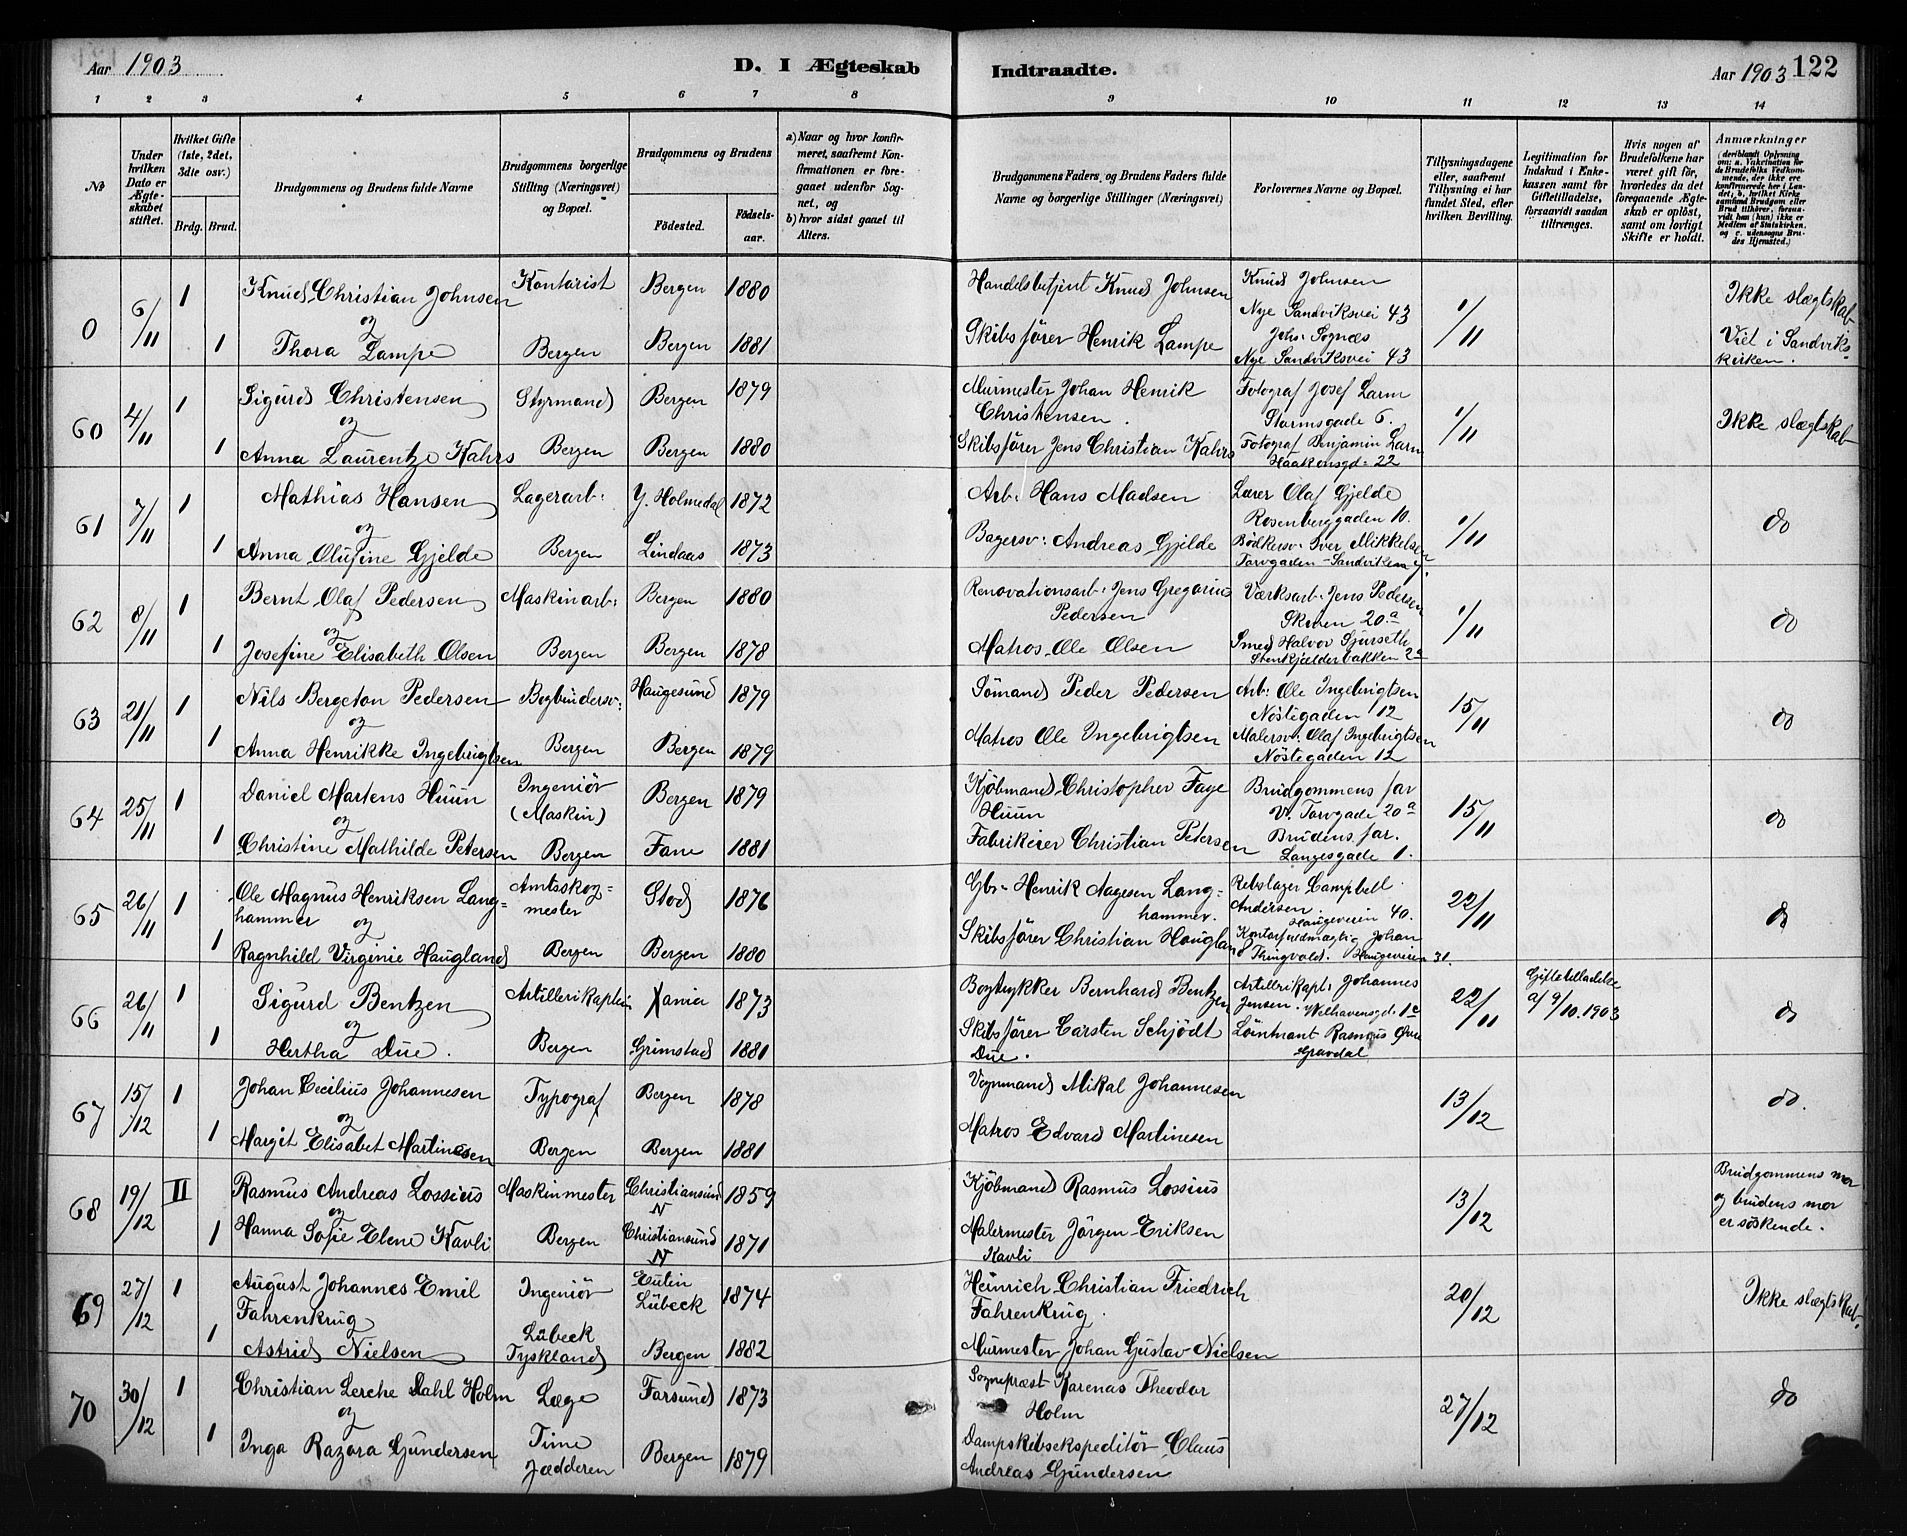 Aar 1903
D. I Ægteskab
Indtraadte.
Aar 1903 122
1 2 3 4 5 6 7 8
9 10 11 12 13 14
№
Under hvilken Dato er Ægteskabet stiftet.
Hvilket Gifte (1ste, 2det, 3die osv.)
Brdg. Brud.
Brudgommens og Brudens fulde Navne
Brudgommens borgerlige Stilling (Næringsvei) og Bopæl.
Brudgommens og Brudens
Fødested.
Fødselsaar.
a) Naar og hvor konfirmeret, saafremt Konfirmationen er foregaaet udenfor Sognet, og
b) hvor sidst gaaet til Alters.
Brudgommens Faders og Brudens Faders fulde Navne og borgerlige Stillinger (Næringsvei)
Forlovernes Navne og Bopæl.
Tillysningsdagene eller, saafremt Tillysning ei har fundet Sted, efter hvilken Bevilling.
Legitimation for Indskud i Enkekassen samt for Giftetilladelse, forsaavidt saadan tiltrænges.
Hvis nogen af Brudefolkene har været gift før, hvorledes da det foregaaende Ægteskab er opløst, samt om lovligt Skifte er holdt.
Anmærkninger
(deriblandt Oplysning om: a. Vakcination for de Brudefolks Vedkommende, der ikke ere konfirmerede her i Landet; b. hvilket Kirkesamfund Brudgom eller Brud tilhører, forsaavidt han (hun) ikke er Medlem af Statskirken, og c. udensogns Brudes Hjemsted.)
0 6/11 1 Knud Christian Johnsen Kontorist Bergen 1880
og
1 Thora Lampe Bergen Bergen 1881
Handelsbetjent Knud Johnsen Knud Johnsen 1/11 Ikke slægtskab
Nye Sandviksvei 43
Skibsfører Henrik Lampe Johs: Sognæs Viet i Sandviks-
Nye Sandviksvei 43 kirken.
60 4/11 1 Sigurd Christensen Styrmand Bergen 1879
og
1 Anna Laurentze Kahrs Bergen Bergen 1880
Murmester Johan Henrik Fotograf Josef Larm 1/11 Ikke slægtskab
Christensen. Stormsgade 6.
Skibsfører Jens Christian Kahrs Fotograf Benjamin Larm
Haakonsgd: 22
61 7/11 1 Mathias Hansen Lagerarb: Y. Holmedal 1872
og
1 Anna Olufine Gjelde Bergen Lindaas 1873
Arb: Hans Madsen Lærer Olaf Gjelde 1/11 do
Rosenberggaden 10.
Bagersv: Andreas Gjelde Bødkersv: Iver Mikkelsen
Torvgaden - Sandviken
62 8/11 1 Bernt Olaf Pedersen Maskinarb: Bergen 1880
og
1 Josefine Elisabeth Olsen Bergen Bergen 1878
Renovationsarb: Jens Gregorius Værksarb: Jens Pedersen 1/11 do
Pedersen Skiven 20.a
Matros Ole Olsen Smed Halvor Sjurseth
Stenkjelderbakken 2a
63 21/11 1 Nils Bergeton Pedersen Bogbindersv: Haugesund 1879
og
1 Anna Henrikke Ingebrigtsen Bergen Bergen 1879
Sømand Peder Pedersen Arb: Ole Ingebrigtsen 15/11 do
Nöstegaden 12
Matros Ole Ingebrigtsen Malersv: Olaf Ingebrigtsen
Nöstegaden 12
64 25/11 1 Daniel Martens Huun Ingeniör Bergen 1879
og (Maskin)
1 Christine Mathilde Petersen Bergen Fane 1881
Kjöbmand Christopher Faye Brudgommens far 15/11 do
Huun V. Torvgade 20a
Fabrikeier Christian Petersen Brudens far.
Langesgade 1.
65 26/11 1 Ole Magnus Henriksen Lang= Amtsskog= Stod 1876
hammer og mester
1 Ragnhild Virginie Haugland Bergen Bergen 1880
Gbr. Henrik Aagesen Lang= Rebslager Campbell 22/11 do
hammer. Andersen. Haugeveien 40.
Skibsfører Christian Haugland Kontorfuldmægtig Johan
Thingvold. Haugeveien 31.
66 26/11 1 Sigurd Bentzen Artillerikaptein Xania 1873
og
1 Hertha Due. Bergen Grimstad 1881
Bogtrykker Bernhard Bentzen Artillerikapt: Johannes 22/11 Giftetilladelse do
Jensen. Welhavensgd. 1c af 9/10.1903
Skibsfører Carsten Schjödt Löitnant Rasmus
Due. Gravdal
67 15/12 1 Johan Cecilius Johannesen Typograf Bergen 1878
og
1 Margit Elisabet Martinesen Bergen Bergen 1881
Vognmand Mikal Johannesen 13/12 do.
Matros Edvard Martinesen
68 19/12 II Rasmus Andreas Lossius Maskinmester Christiansund N 1859
og
1 Hanna Sofie Elene Kavli Bergen Christiansund N 1871
Kjöbmand Rasmus Lossius 13/12 Brudgommens mor
og brudens mor
Malermester Jörgen Eriksen er söskende.
Kavli
69 27/12 1 August Johannes Emil Ingeniör Eutin 1874
Fahrenkrug Lübeck
1 Astrid Nielsen Lübeck Tyskland Bergen 1882
Heinrich Christian Friedrich 20/12 Ikke slægtskab.
Fahrenkrug.
Murmester Johan Gustav Nielsen
70 30/12 1 Christian Lerche Dahl Holm Læge Farsund 1873
og
1 Inga Razora Gundersen Time Jædderen Bergen 1879
Sognepræst Karenas Theodor 27/12 do
Holm
Dampskibsekspeditör Claus
Andreas Gundersen